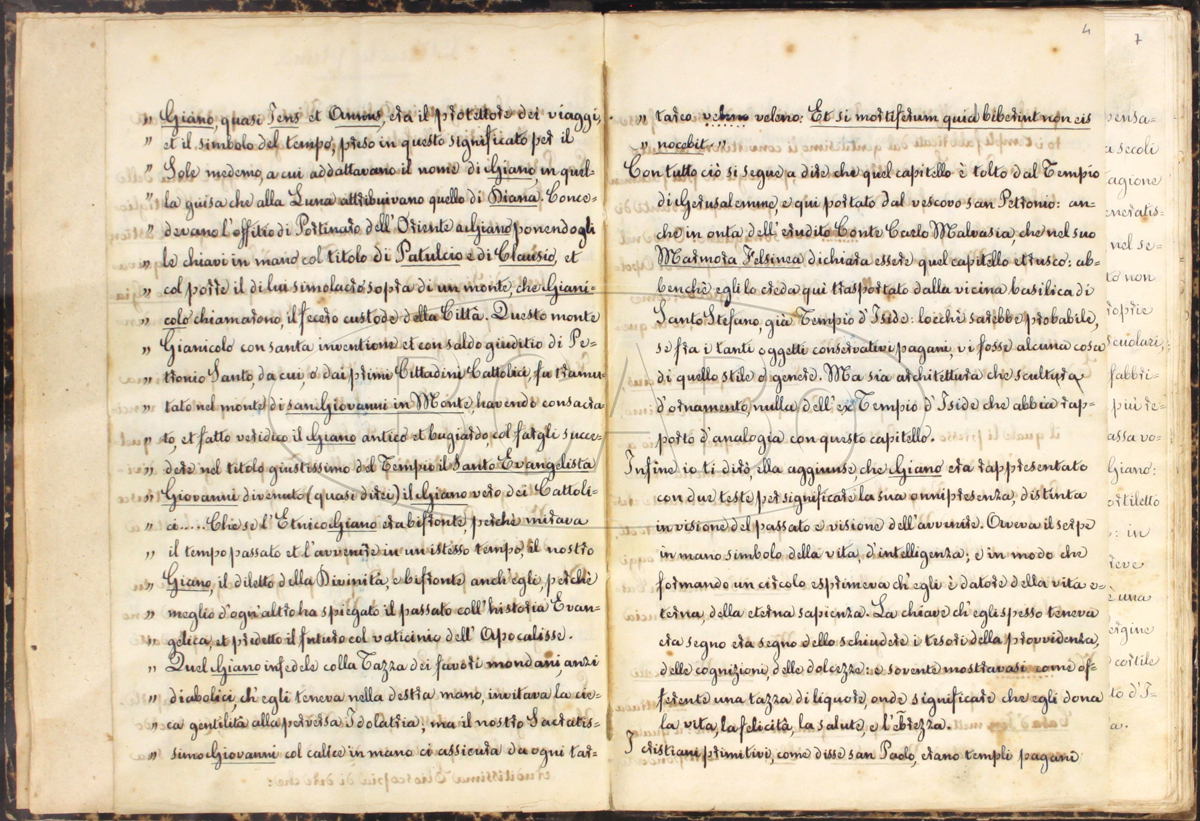 „ Giano, quasi Iens et Annus, era il protettore dei viaggi,
„ et il simbolo del tempo, preso in questo significato per il
„ Sole medemo, a cui addattavano il nome di Giano in quel-
„ la guisa che alla Luna attribuivano quello di Diana. Conce-
„ devano l'offitio di Portinaro dell'Oriente a Giano ponendogli
„ le chiavi in mano col titolo di Patulcio e di Clausio, et
„ col porre il di lui simolacro sopra di un monte, che Giani-
„ colo chiamarono, il fecero custode della Città. Questo monte
„ Gianicolo con santa inventione et con saldo giuditio di Pe-
„ tronio Santo, da cui, o dai primi Cittadini Cattolici, fu tramu-
„ tato nel monte di san Giovanni in Monte, havendo consacra
„ to, et fatto veridico il Giano antico et bugiardo, col fargli succe-
„ dere nel titolo giustissimo del Tempio il Santo Evangelista
„ Giovanni divenuto (quasi direi) il Giano vero dei Cattoli-
„ ci..... Che se l'Etnico Giano era bifronte, perchè mirava
„ il tempo passato et l'avvenire in un istesso tempo, il nostro
„ Giano, il diletto della Divinità, è bifronte anch'egli, perchè
„ meglio d'ogn'altro ha spiegato il passato coll'historia Evan-
„ gelica, et predetto il futuro col vaticinio dell'Apocalisse.
„ Quel Giano infedele colla Tazza dei favori mondani, anzi
„ diabolici, ch'egli teneva nella destra mano, invitava la cie-
„ ca gentilità alla perversa Idolatria; ma il nostro Sacratis-
„ simo Giovanni col calice in mano ci assicura da ogni tar-
4
„ tareo veleno veleno: Et si mortiferum quid biberint non eis
„ nocebit. „
Con tutto ciò si segue a dire che quel capitello è tolto dal Tempio
di Gerusalemme, e qui portato dal vescovo san Petronio: an-
che in onta dell'erudito Conte Carlo Malvasia, che nel suo
Marmora Felsinea dichiara essere quel capitello etrusco: ab-
benchè egli lo creda quì trasportato dalla vicina basilica di
Santo Stefano, già Tempio d'Iside: locchè sarebbe probabile,
se fra i tanti oggetti conservativi pagani, vi fosse alcuna cosa
di quello stile o genere. Ma sia architettura che scultura
d'ornamento, nulla dell'ex Tempio d'Iside che abbia rap-
porto d'analogia con questo capitello.
Infine io ti dirò, ella aggiunse, che Giano era rappresentato
con due teste per significare la sua onnipresenza, distinta
in visione del passato e visione dell'avvenire. Aveva il serpe
in mano simbolo della vita, d'intelligenza; e in modo che
formando un circolo esprimeva ch'egli è datore della vita e-
terna, della eterna sapienza. La chiave ch'egli spesso teneva
era segno era segno dello schiudere i tesori della provvidenza,
delle cognizioni, delle dolcezze: e sovente mostravasi come of-
ferente una tazza di liquore, onde significare che egli dona
la vita, la felicità, la salute, e l'ebrezza.
I cristiani primitivi, come disse san Paolo, erano templi pagani
7
pensa-
a secoli
agione
neratis-
nel se-
to non
roprie
scuolari,
fabbri-
più re-
assa vo-
Giano:
ortiletto
: in
rieve
è una
ergine
cortile
to d'I-
a.